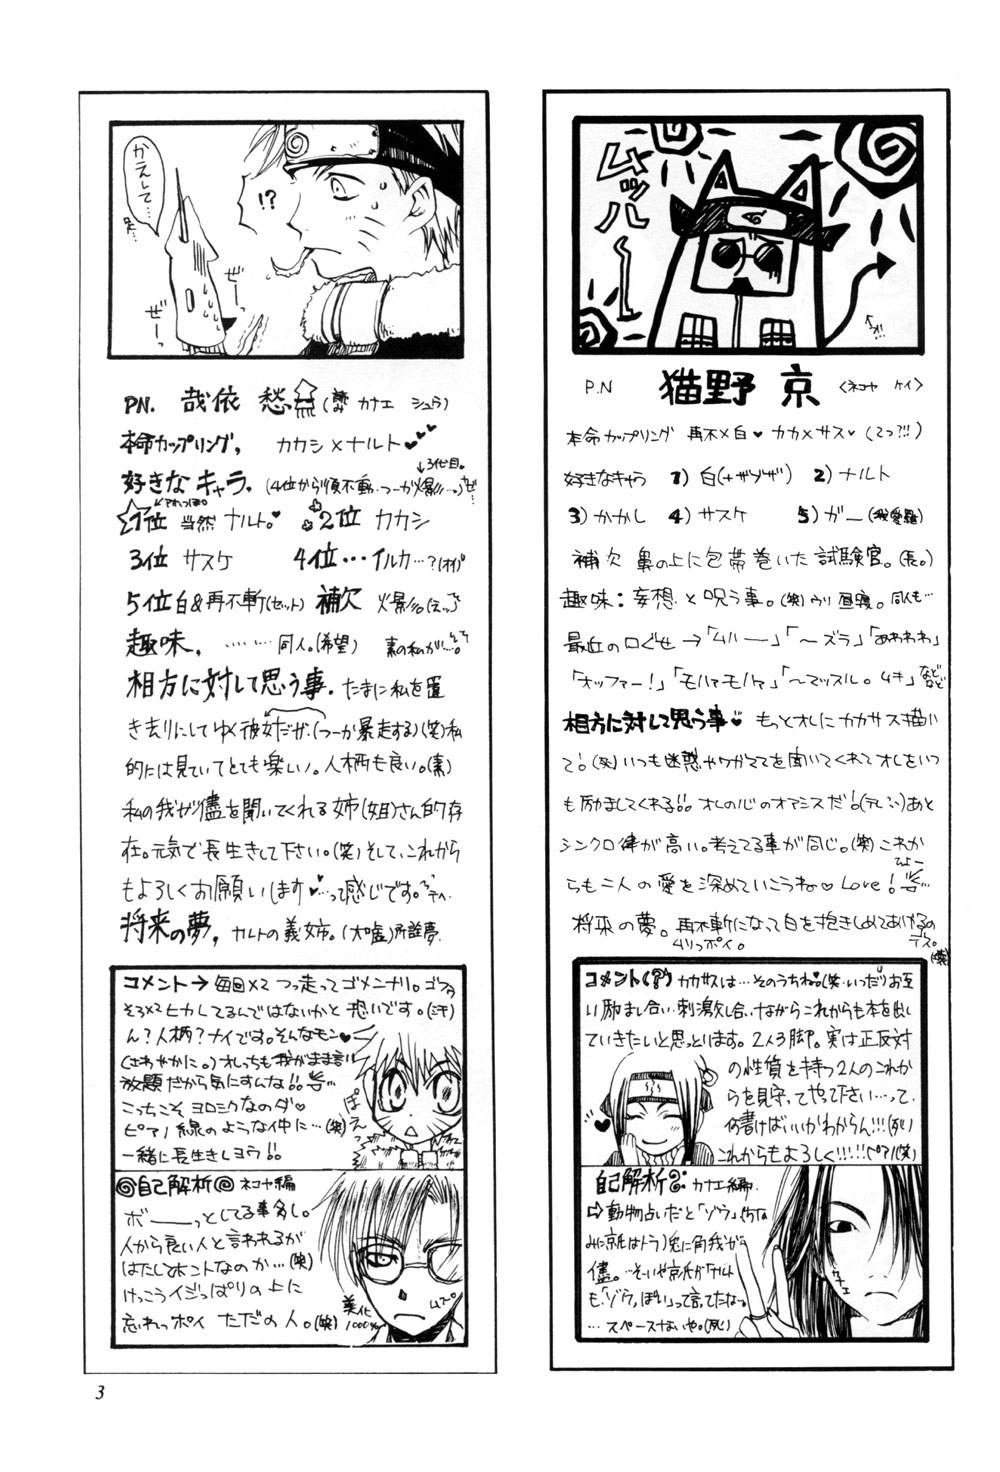 ムッハー
P.N 猫野 京 〈ネコヤ ケイ〉
本命カップリング 再不×白♥ カカ×サス♥ (てっ?!!)
好きなキャラ 1)白(+ザブザ) 2)ナルト
3)かかし 4)サスケ 5)ガー(我愛羅)
補欠 鼻の上に包帯巻いた試験官。(長。)
趣味:妄想と呪う事。(笑)ウリ 昼寝。同人…
最近の口ぐせ→「ムハー」「〜ズラ」「あわわわ」
「オッファー!」「モハァモハァ」「〜マッスル。ムキ」などなど
相方に対して思う事♥ もっとオレにカカサス描い
て。(笑)いつも迷惑やワガママを聞いてくれてオレをいつ
も励ましてくれる!!オレの心のオアシスだ!(テレ)あと
シンクロ律が高い。考えてる事が同じ。(笑)これか
らも二人の愛を深めていこうね♡Love!
将来の夢。再不斬になって白を抱きしめてあげるの
デス。
ムリっポイ。(笑)
コメント(?) カカサスは…そのうちね♥(笑)いつだりお互
い励まし合い刺激し合いながらこれからも本を出し
ていきたいと思っとります。2人3脚。実は正反対
の性質を持つ2人のこれか
らを見守ってやって下さい…って、
何書けばいいかわからん!!!(死)
これからもよろしく!!!!!(ピアノ)(笑)
自己解析 カナエ編。
⇨動物占いだと「ゾウ」(ちな
みに京氏はトラ)兎に角我が
儘。…そーいや京氏が「ナルト
も「ゾウ」っぽい」って言ってたな。
…スペースないや。(死)
かえして…
!?
ぜーっ
ぜーっ
PN. 哉依 愁 (読み カナエ シュウ)
本命カップリング, カカシ×ナルト♥♥♥
↓3代目♥
好きなキャラ。(4位から順不動…つーか火影…)
1位 当然 ナルト。♥ 2位 カカシ
3位 サスケ 4位…イルカ…?(オイ)
5位 白&再不斬(セット) 補欠 火影(えっ)
趣味, ………同人。(希望) 素の私が…。
相方に対して思う事. たまに私を置
き去りにしてゆく彼女だが。(つーか暴走する)(笑)私
的には見ていてとても楽しい。人柄も良い。(素)
私の我が儘を聞いてくれる姉(姐)さん的存
在。元気で長生きして下さい。(笑)そして、これから
もよろしくお願いします♥…って感じです。
将来の夢, ナルトの義姉。(大嘘)所詮夢.
コメント→毎回××つっ走ってゴメンナリ。
そろそろヒカしてるんではないかと恐いです。(汗)
ん?人柄?ナイです。そんなモン♥
(さわやかに。)オレっちも我がまま言い
放題だから気にすんな!!
こっちこそ ヨロシクなのダ♡
ピアノ線のような仲に…(笑)
一緒に長生きしヨウ!!
ぽえ〜
自己解析 ネコヤ編
ボーーっとしてる事多し。
人から良い人と言われるが
はたしてホントなのか…(笑)
けっこうイジっぱりの上に
忘れっポイ ただの人。(笑)
美化
1000%
3